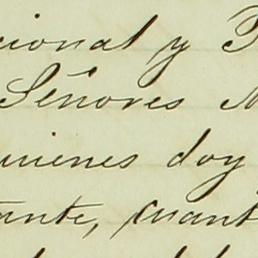 cional y
Señores
quienes doy
tante, cuant